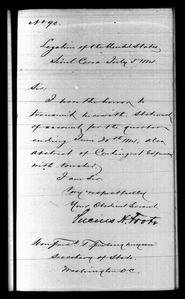 No 90.
Legation of the United States,
Sir:
I have the honor to
transmit herewith statement
of account for the quarter
ending June 30th
abstract of Contingent Expenses
with vouchers.
I am Sir
Very respectfully
Your Obedient Servant
Lucius H. Foote
Secretary of State,
Washington D.C.